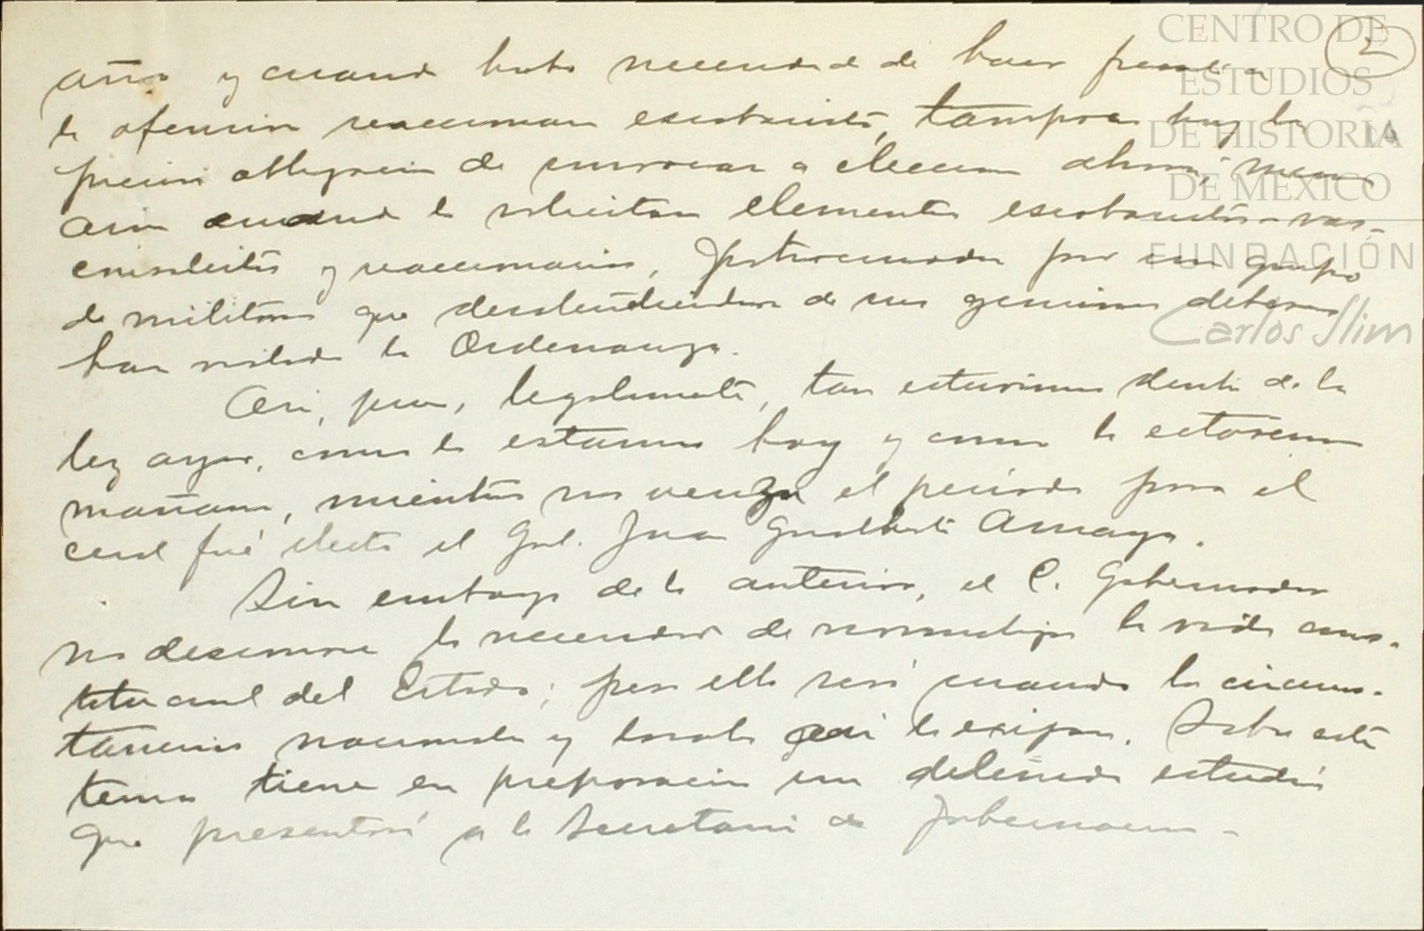 2
año y cuando hubo necesidad de hacer frente a
la ofensiva reaccionaria escobarista, tampoco hay la
precisa obligación de convocar a elección ahora, menos
aún cuando lo solicitan elementos escobaristas-vas-
concelistas y reaccionarios, patrocinados por un grupo
de militares que desatendiéndose de sus genuinos deberes
han violado la Ordenanza.
Así, pues, legalmente, tan estuvimos dentro de la
ley ayer, como lo estamos hoy y como lo estaremos
mañana, mientras no venza el período para el
cual fué electo el Gral. Juan Gualberto Amaya.
Sin embargo de lo anterior, el C. Gobernador
no desconoce la necesidad de normalizar la vida cons-
titucional del Estado; pero ello será cuando las circuns-
tancias nacionales y locales así lo exijan. Sobre este
tema tiene en preparación un detenido estudio
que presentará a la Secretaría de Gobernación-
CENTRO DE
ESTUDIOS
DE HISTORIA
DE MEXICO
FUNDACIÓN
Carlos Slim